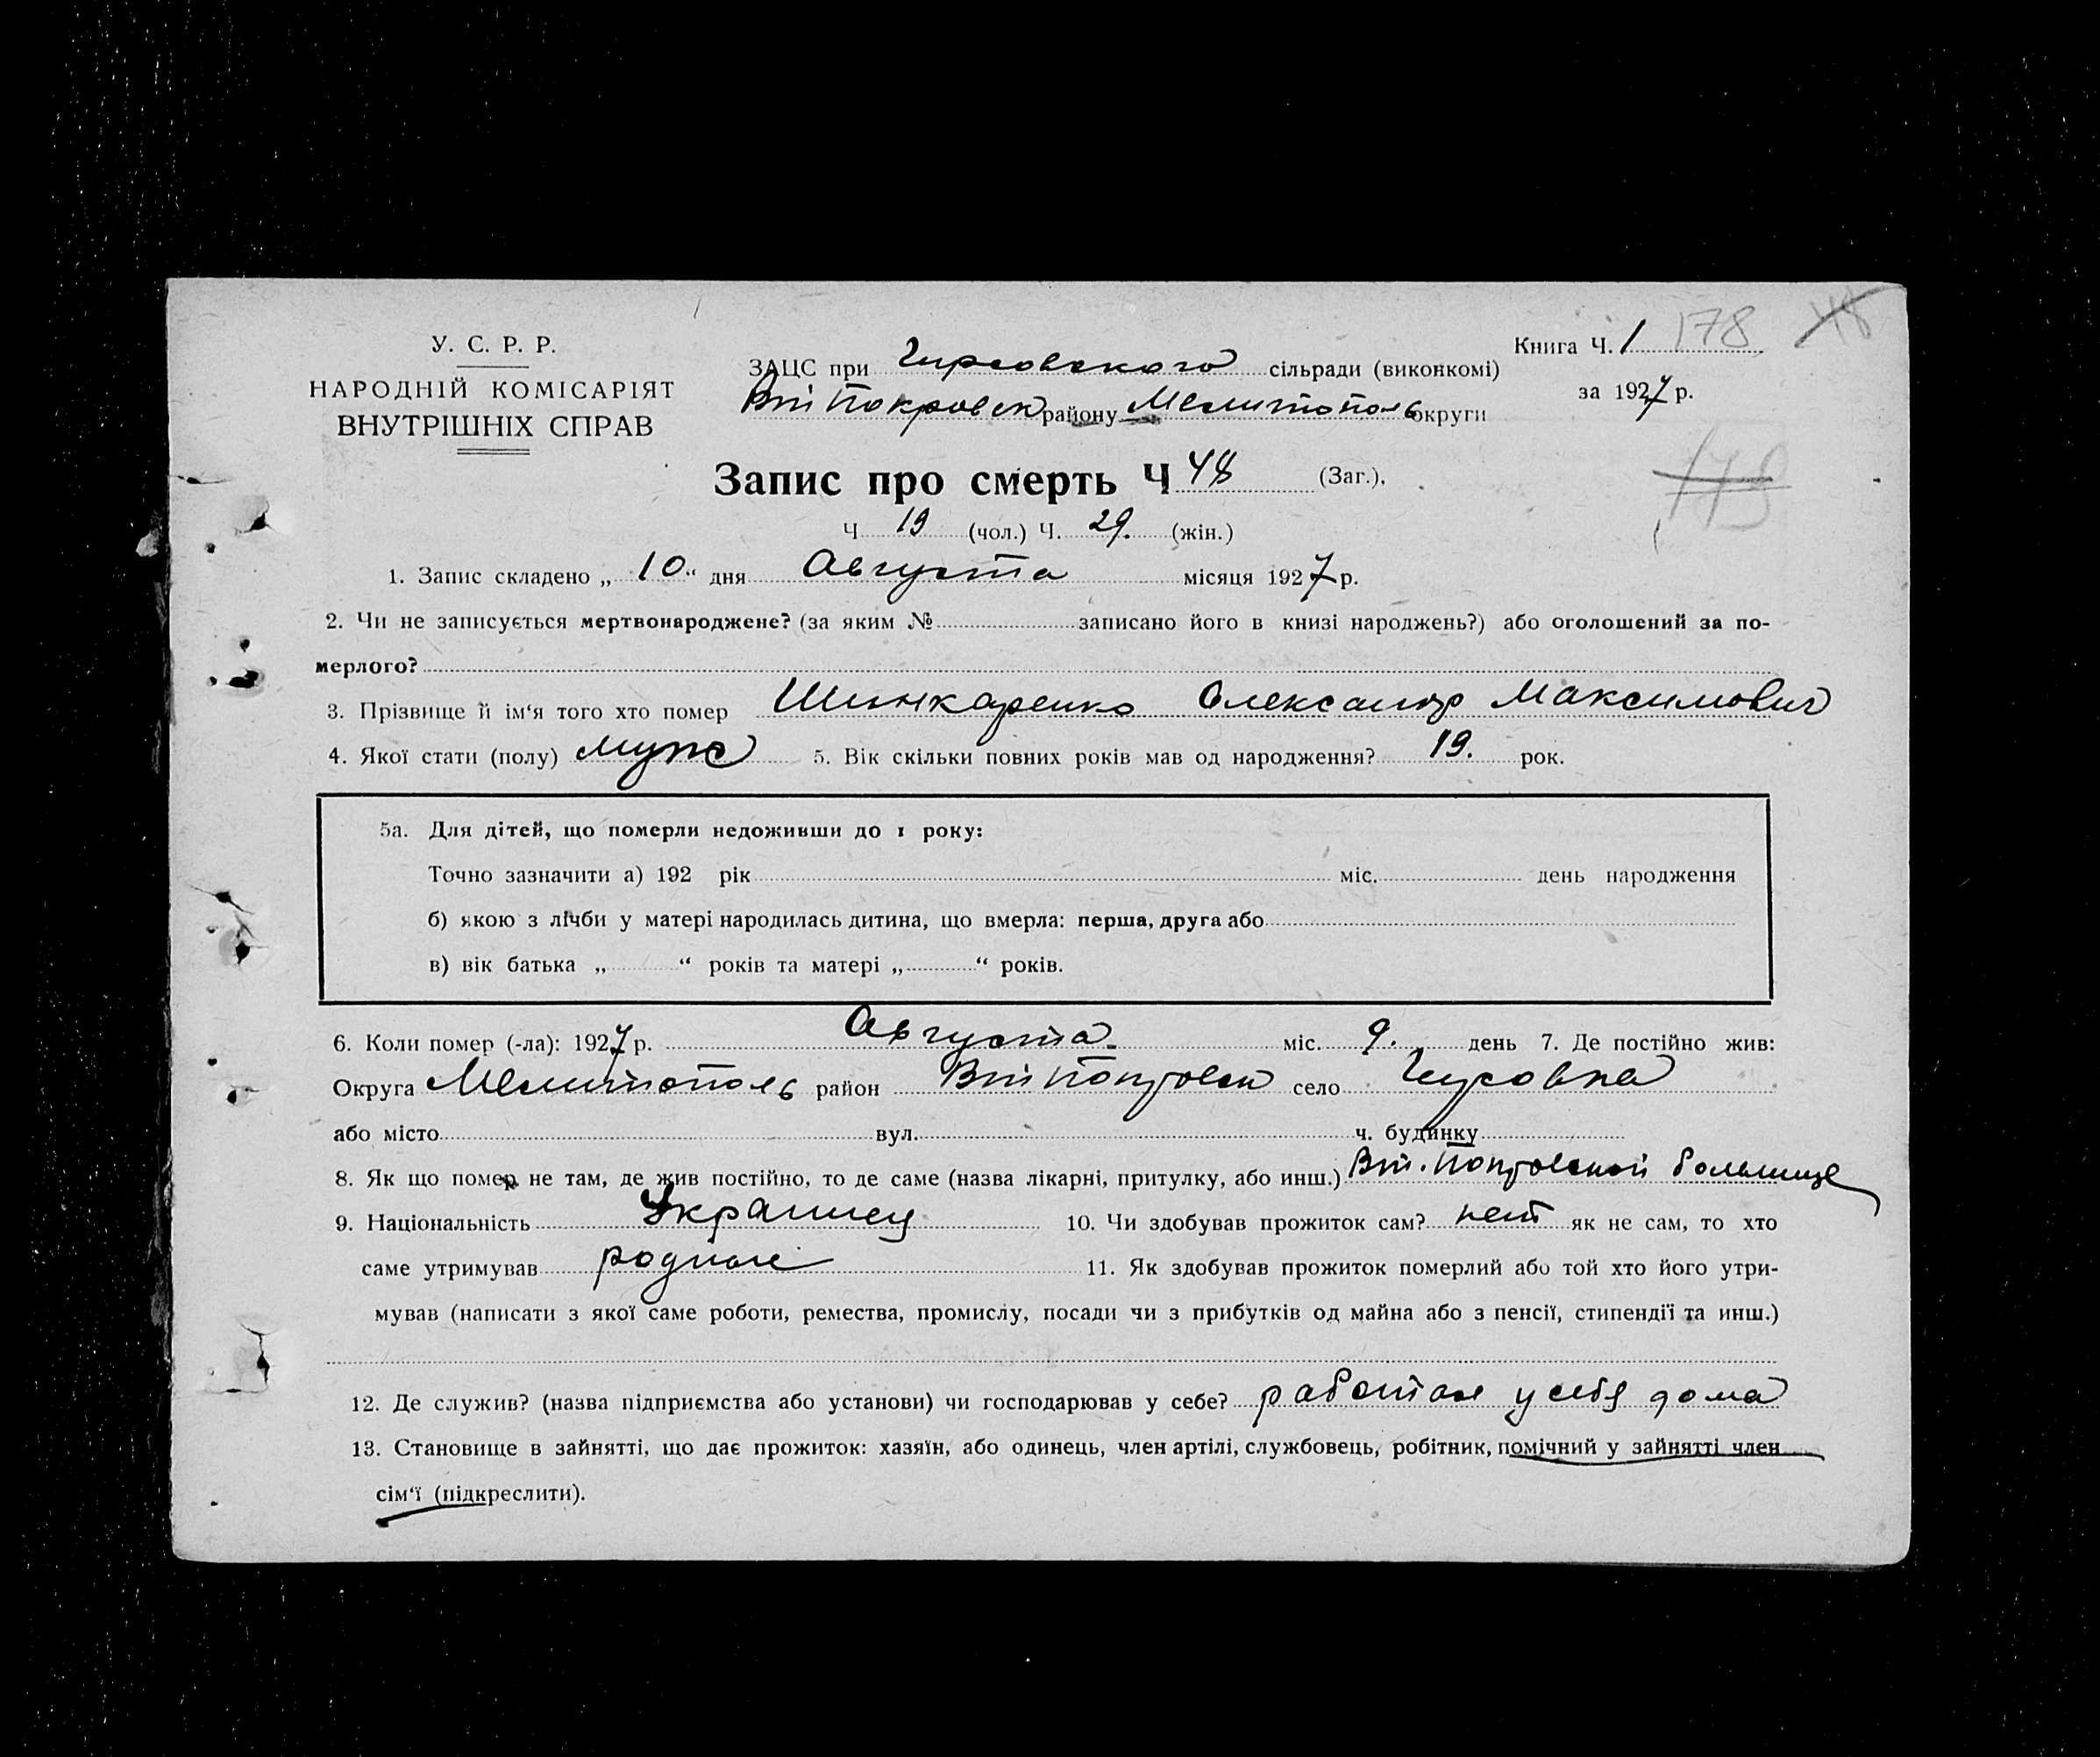 У. С. Р. Р.
НАРОДНІЙ КОМІСАРІЯТ
ВНУТРІШНІХ СПРАВ
ЗАЦС при Гирсовского сільради (виконкомі)
Вт Покровск району Мелитополь округи
Книга Ч. 1 178
за 1927 р.
Запис про смерть Ч 48 (Заг.).
178
Ч 19 (чол.) Ч. 29. (жін.)
1. Запис складено „ 10 “ дня Августа місяця 1927 р.
2. Чи не записується мертвонароджене? (за яким № записано його в книзі народжень?) або оголошений за по-
мерлого?
3. Прізвище й ім‘я того хто помер Шинкаренко Олександр Максимович
4. Якої стати (полу) муж 5. Вік скільки повних років мав од народження? 19. рок.
5а. Для дітей, що померли недоживши до 1 року:
Точно зазначити а) 192 рік міс. день народження
б) якою з лічби у матері народилась дитина, що вмерла: перша, друга або
в) вік батька „ “ років та матері „ “ років.
6. Коли помер (-ла): 1927 р. Августа міс. 9. день 7. Де постійно жив:
Округа Мелитополь район Вт Покровск село Гирсовка
або місто вул. ч. будинку
8. Як що помер не там, де жив постійно, то де саме (назва лікарні, притулку, або инш.) Вт. Покровской больнице
9. Національність Украинец 10. Чи здобував прожиток сам? нет як не сам, то хто
саме утримував родные 11. Як здобував прожиток померлий або той хто його утри-
мував (написати з якої саме роботи, ремества, промислу, посади чи з прибутків од майна або з пенсії, стипендії та инш.)
12. Де служив? (назва підприємства або установи) чи господарював у себе? работал у себя дома
13. Становище в зайнятті, що дає прожиток: хазяїн, або одинець, член артілі, службовець, робітник, помічний у зайнятті член
сім‘ї (підкреслити).